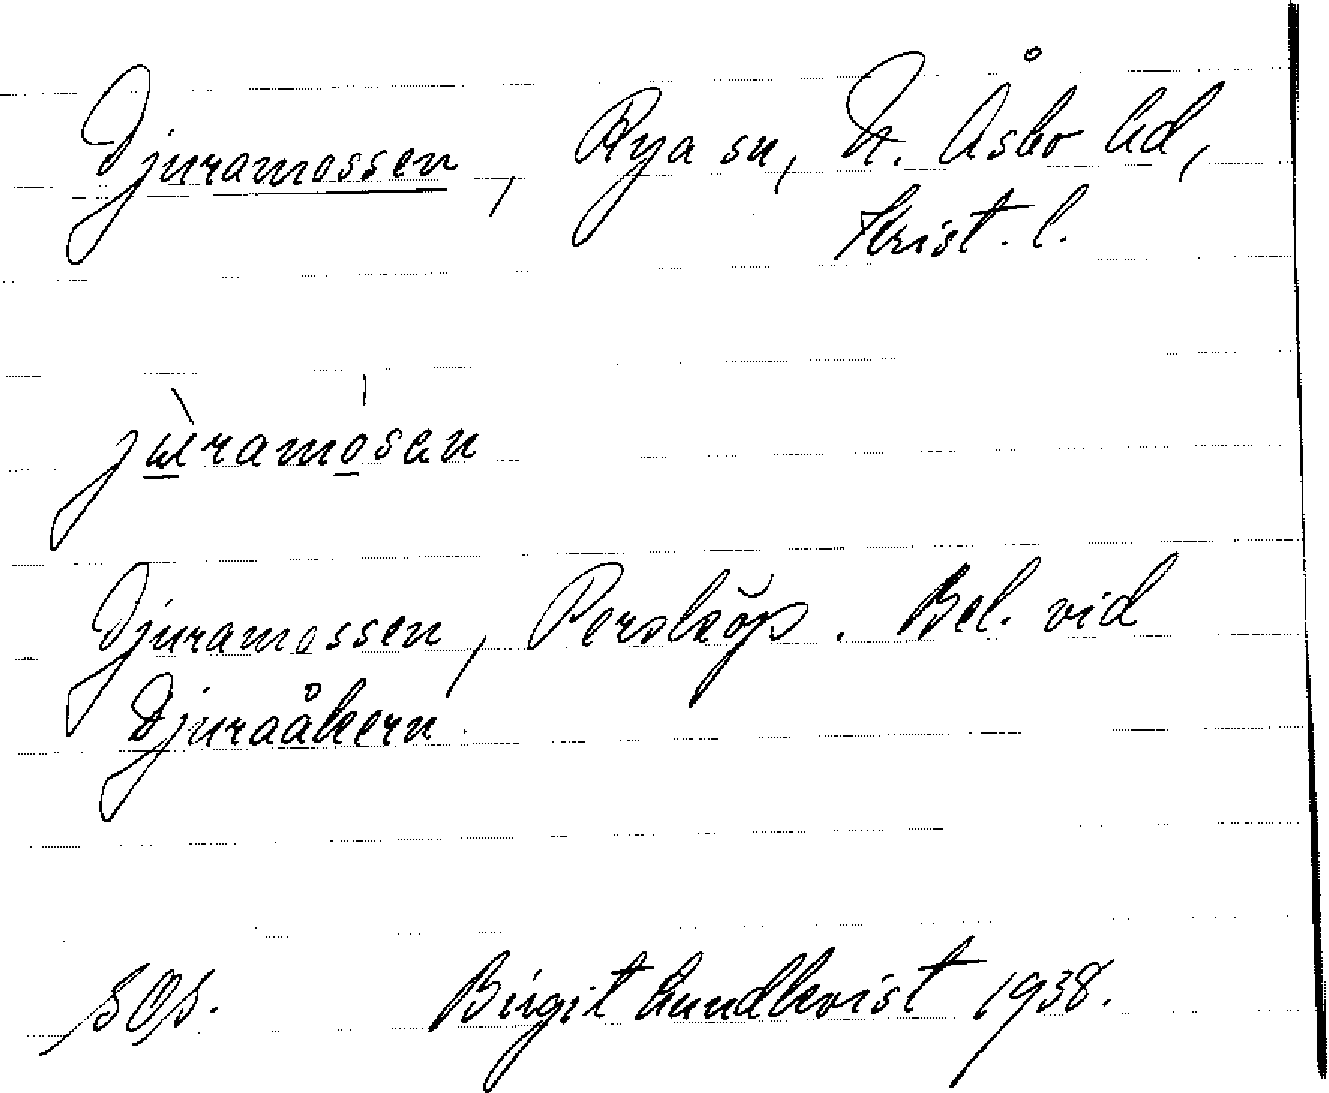 Djuramossen, Rya sn, N. Åsbo hd,
Krist. l.
jùramósen
Djuramossen, Perskӧp. Bel. vid
Djuraåkern.
SOS. Birgit Lundkvist 1938.